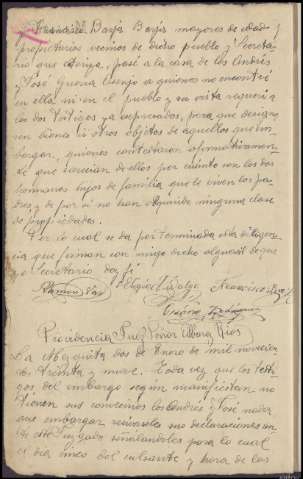 Francisco Borja Borja mayores de edad y
propietarios vecinos de dicho pueblo y Secreta
rio que autoriza, pasé a la casa de los Andrés
y José Guerra Cuenjo a quienes no encontré
en ella ni en el pueblo y en vista requerí a
los dos Testigos ya expresados, para que design
en bienes u otros objetos de aquellos que em
bargar, quienes contestaron afirmativamen
te que carecían de ellos por cuanto son los dos
hermanos hijos de familia que le viven los pa
dres y de por sí no han adquirido ninguna clase
de propiedades.
Por lo cual se da por terminada esta diligen
cia que firman con migo dicho alguacil de que
yo el secretario doy fé
Ramón
Eloy Hidalgo
Francisco
Providencia Juez Señor Alvarez Rios
La Mezquita dos de Enero de mil novecien
tos treinta y nueve. Toda vez que los testi
gos del embargo según manifiestan no
tienen sus convecinos los Andrés y José nada
que embargar recíbaseles sus declaraciones an
te este Juzgado señalándoles para lo cual
el día cinco del actual y hora de las